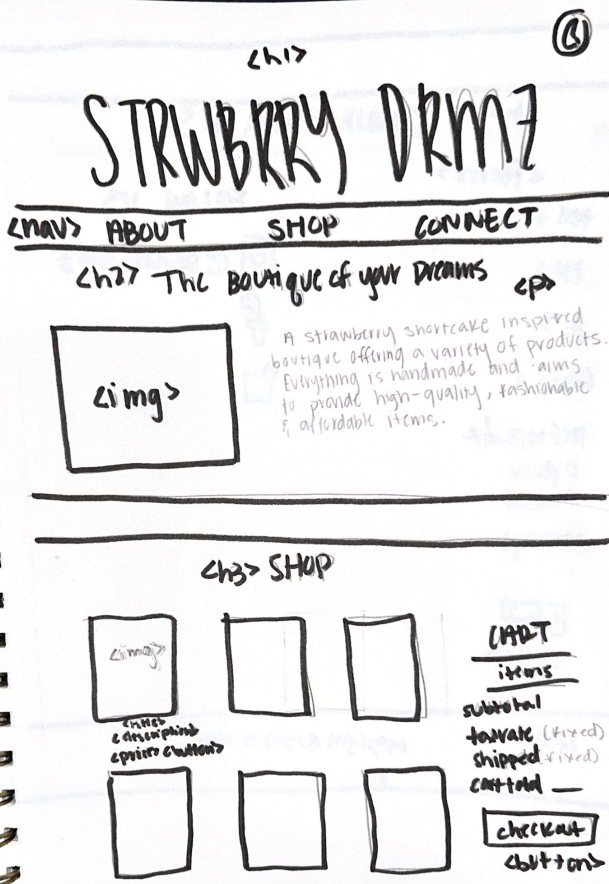 B
<h1>
STRWBRRY DRMZ
<nav> ABOUT SHOP CONNECT
<h2> The Boutique of your Dreams <p>
A strawberry shortcake inspired
boutique offering a variety of products.
Everything is handmade and aims
to provide high-quality, fashionable
& affordable items.
<img>
<h3> SHOP
<img>
<title>
<description>
<price> <button>
CART
items
subtotal
taxrate (fixed)
shipped (fixed)
cart total __
checkout
<button>